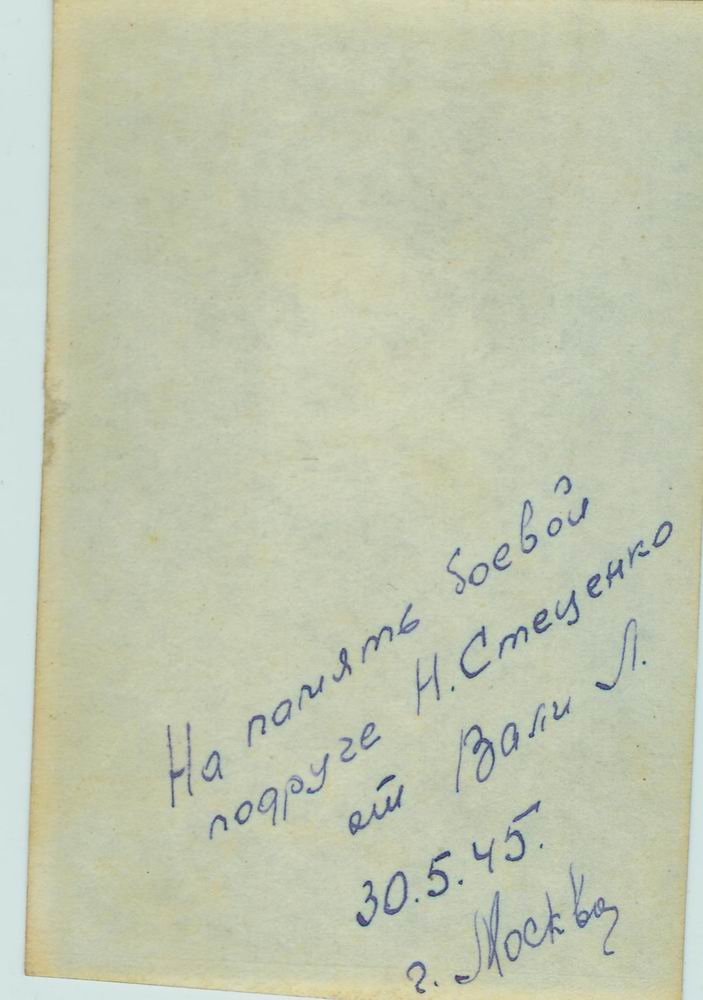 На память боевой
подруге Н. Стеценко
от Вали Л.
30.5.45.
г. Москва